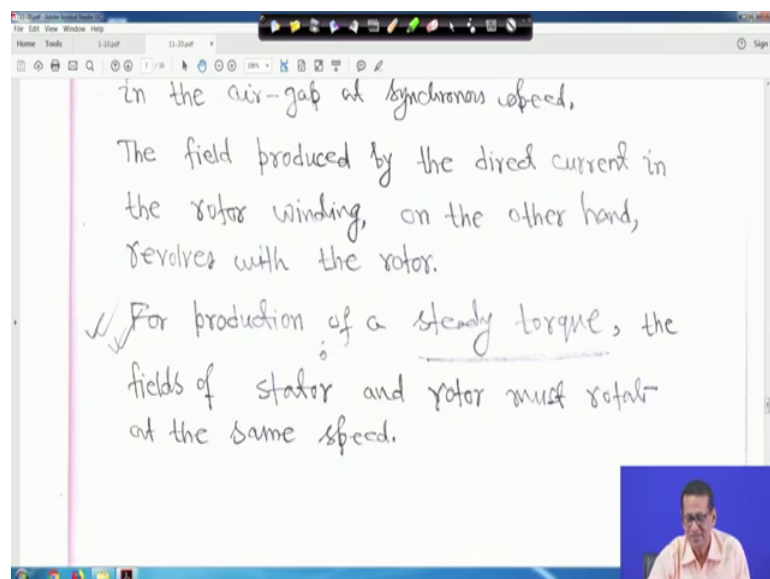 11-20.pdf - Adobe Acrobat Reader DC
File Edit View Window Help
Home Tools 1-10.pdf 11-20.pdf × Sign
7 / 10
in the air-gap at synchronous speed.
The field produced by the direct current in
the rotor winding, on the other hand,
revolves with the rotor.
For production of a steady torque, the
fields of stator and rotor must rotate
at the same speed.